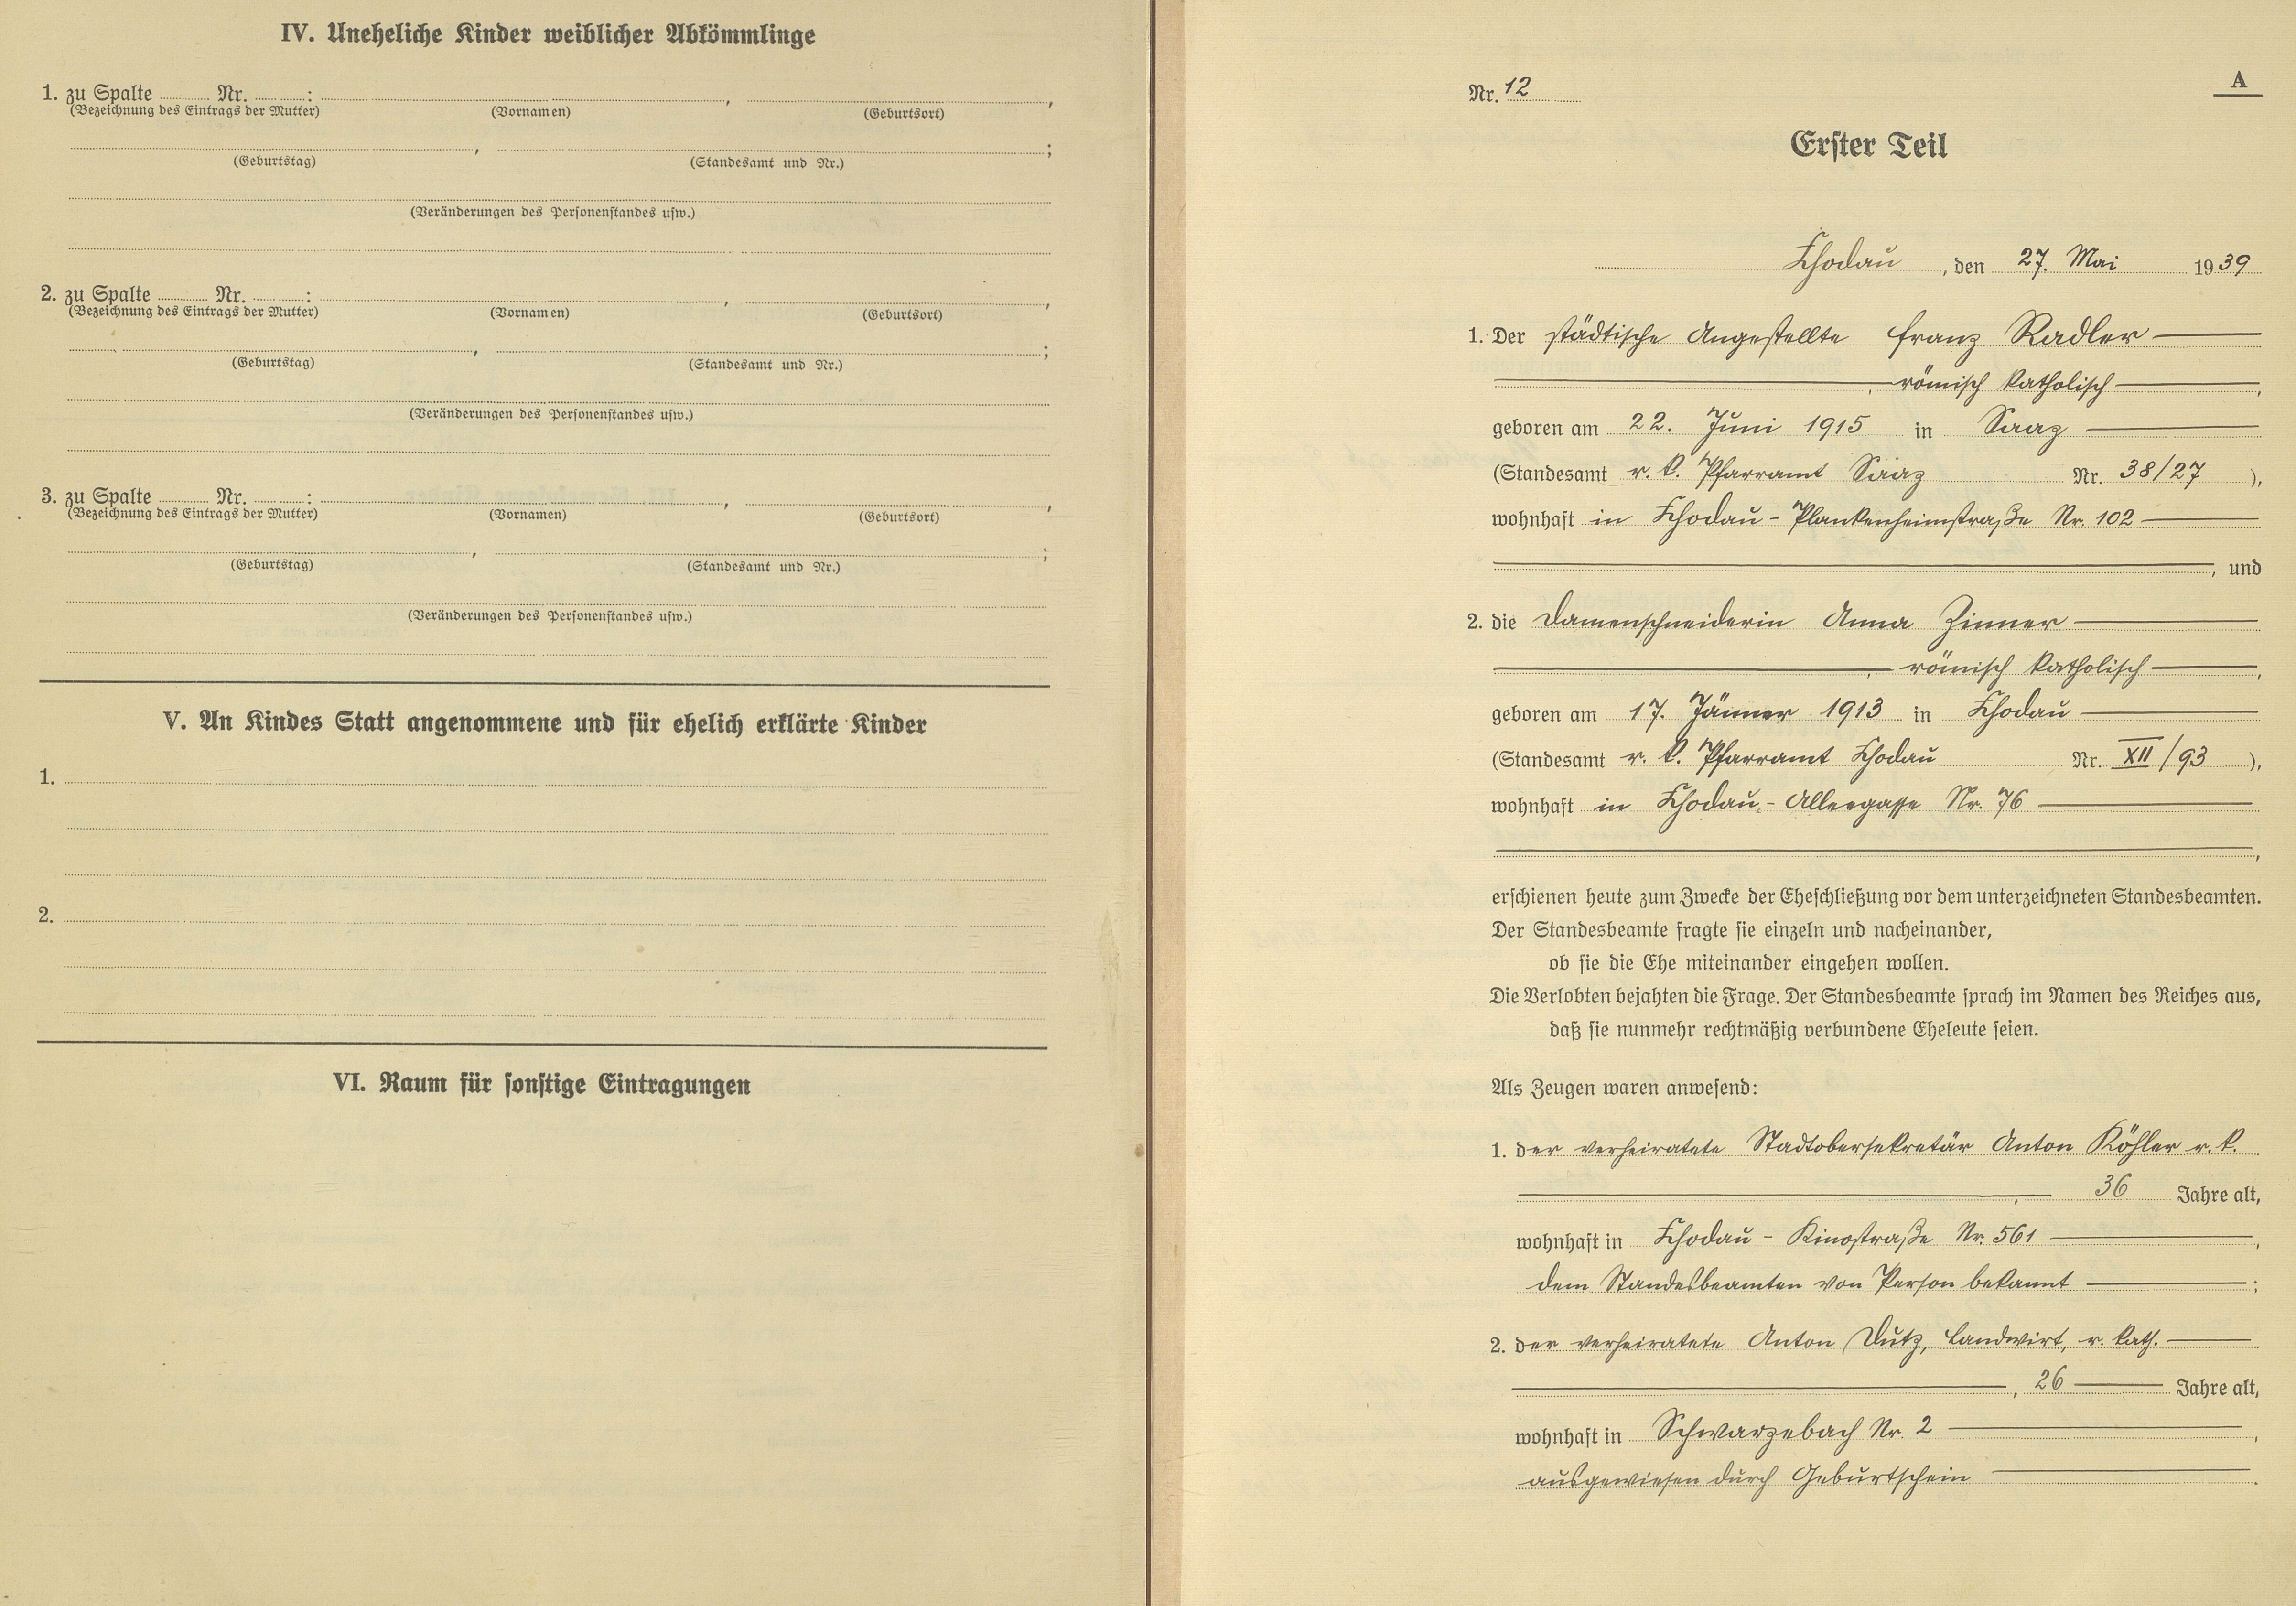 IV. Uneheliche Kinder weiblicher Abkömmlinge
1. zu Spalte Nr. : , ,
(Bezeichnung des Eintrags der Mutter) (Vornamen) (Geburtsort)
, ;
(Geburtstag) (Standesamt und Nr.)
(Veränderungen des Personenstandes usw.)
2. zu Spalte Nr. : , ,
(Bezeichnung des Eintrags der Mutter) (Vornamen) (Geburtsort)
, ;
(Geburtstag) (Standesamt und Nr.)
(Veränderungen des Personenstandes usw.)
3. zu Spalte Nr. : , ,
(Bezeichnung des Eintrags der Mutter) (Vornamen) (Geburtsort)
, ;
(Geburtstag) (Standesamt und Nr.)
(Veränderungen des Personenstandes usw.)
V. An Kindes Statt angenommene und für ehelich erklärte Kinder
1.
2.
VI. Raum für sonstige Eintragungen
Nr. 12
A
Erster Teil
Chodau, den 27. Mai 1939
1. Der städtische Angestellte Franz Radler
, römisch katholisch,
geboren am 22. Juni 1915 in Saaz
(Standesamt r. k. Pfarramt Saaz Nr. 38/27),
wohnhaft in Chodau - Plankenheimstraße Nr. 102
, und
2. die Damenschneiderin Anna Zinner
, römisch katholisch,
geboren am 17. Jänner 1913 in Chodau
(Standesamt r. k. Pfarramt Chodau Nr. XII/93),
wohnhaft in Chodau - Alleegasse Nr. 76
,
erschienen heute zum Zwecke der Eheschließung vor dem unterzeichneten Standesbeamten.
Der Standesbeamte fragte sie einzeln und nacheinander,
ob sie die Ehe miteinander eingehen wollen.
Die Verlobten bejahten die Frage. Der Standesbeamte sprach im Namen des Reiches aus,
daß sie nunmehr rechtmäßig verbundene Eheleute seien.
Als Zeugen waren anwesend:
1. der verheiratete Stadtobersekretär Anton Köhler r. k.
, 36 Jahre alt,
wohnhaft in Chodau - Kinostraße Nr. 561,
dem Standesbeamten von Person bekannt;
2. der verheiratete Anton Dutz, Landwirt, r. kath.
, 26 Jahre alt,
wohnhaft in Schwarzebach Nr. 2,
ausgewiesen durch Geburtschein.